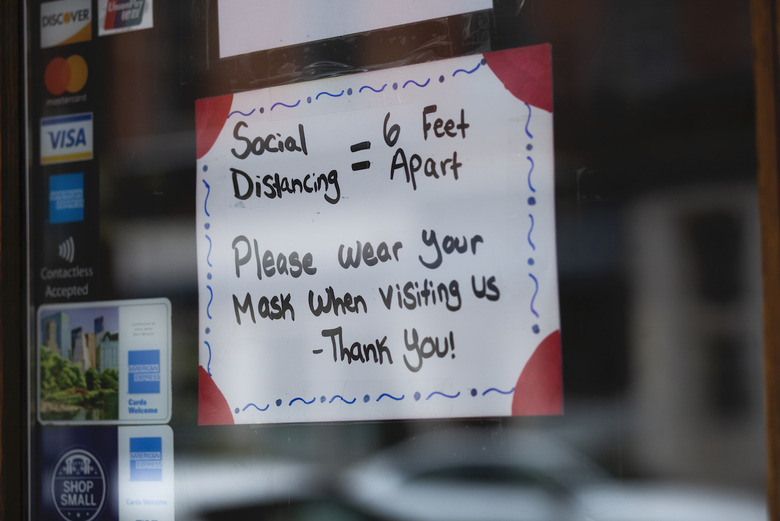 DISCOVER
UnionPay
mastercard
VISA
AMERICAN
EXPRESS
Contactless
Accepted
AMERICAN
EXPRESS
Cards
Welcome
SHOP
SMALL
AMERICAN
EXPRESS
Cards Welcome
Social
Distancing = 6 Feet
Apart
Please wear your
Mask when visiting us
-Thank you!